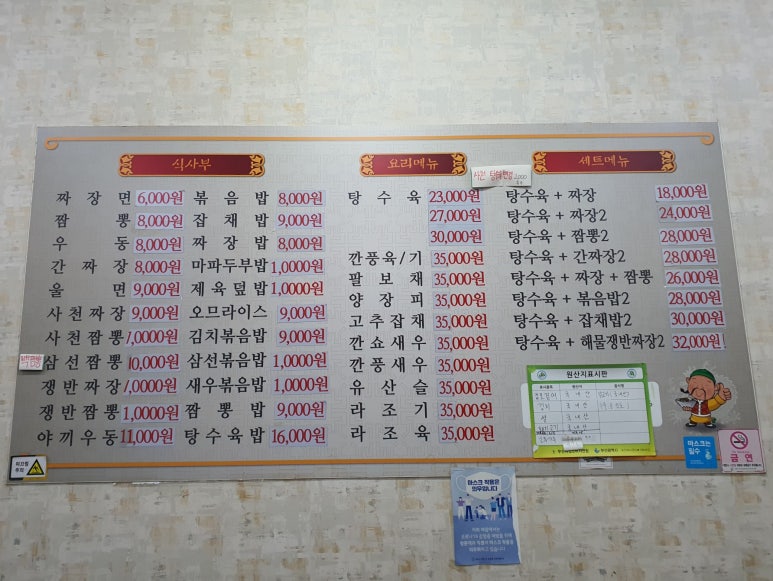 식사부
짜장면 6,000원
짬뽕 8,000원
우동 8,000원
간짜장 8,000원
울면 9,000원
사천짜장 9,000원
사천짬뽕 1,000원
삼선짬뽕 10,000원
쟁반짜장 1,000원
쟁반짬뽕 1,0000원
야끼우동 11,000원
볶음밥 8,000원
잡채밥 9,000원
짜장밥 8,000원
마파두부밥 1,0000원
제육덮밥 1,0000원
오므라이스 9,000원
김치볶음밥 9,000원
삼선볶음밥 1,0000원
새우볶음밥 1,0000원
짬뽕밥 9,000원
탕수육밥 16,000원
요리메뉴
탕수육 23,000원
27,000원
30,000원
깐풍육/기 35,000원
팔보채 35,000원
양장피 35,000원
고추잡채 35,000원
깐쇼새우 35,000원
깐풍새우 35,000원
유산슬 35,000원
라조기 35,000원
라조육 35,000원
세트메뉴
탕수육 + 짜장 18,000원
탕수육 + 짜장2 24,000원
탕수육 + 짬뽕2 28,000원
탕수육 + 간짜장2 28,000원
탕수육 + 짜장 + 짬뽕 26,000원
탕수육 + 볶음밥2 28,000원
탕수육 + 잡채밥2 30,000원
탕수육 + 해물쟁반짜장2 32,000원
원산지표시판
마스크는
필수
금연
미끄럼
주의
마스크 착용은
의무입니다